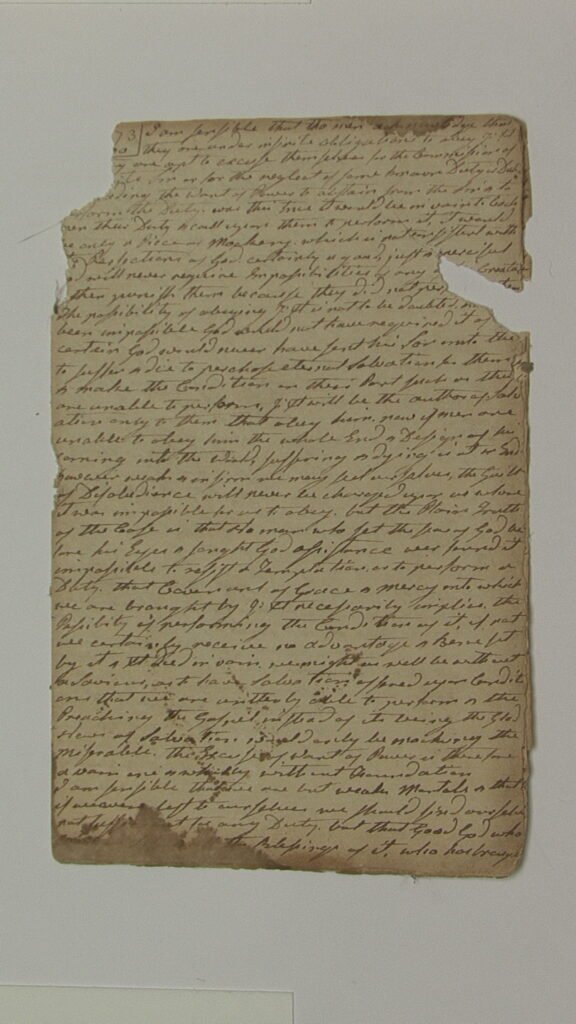 73 I am sensible that tho men acknowledge that
they are under infinite obligations to obey
are apt to excuse themselves for the Commission of
Sin or for the neglect of some known Duty
the Want of Power to abstain from the Sin or to
perform the Duty. was this true it would be in vain to
their Duty or call upon them to perform it, it would
be only a Piece of Mockery, which is not consistent with
Perfections of God. certainly a good, just & merciful
will never require Impossibilities of any Creature
then punish them because they did not
The possibility of obeying is not to be doubted,
been impossible God would not have required it of
certain God would never have sent his Son into the
to suffer & die to purchase eternal Salvation for them
& make the Condition on their Part such as they
are unable to perform. J: Xt will be the author of Salv
ation only to them that obey him. now if men are
unable to obey him the whole End & Design of his
coming into the World, suffering & dying is at an End
however weak & infirm we may feel ourselves, the Guilt
of Disobedience will never be charged upon us where
it was impossible for us to obey. but the Plain Truth
of the Case is that no man who set the fear of God be
fore his Eyes & sought God assistance ever found it
impossible to resist a Temptation, or to perform a
Duty. that Covenant of Grace & Mercy into which
we are brought by J: Xt necessarily implies the
Possibility of performing the Condition of it, if not
we certainly receive no advantage or Benefit
by it & Xt died in vain. we might as well be without
a Saviour, as to have Salvation offered upon Conditi
ons that we are utterly unable to perform & the
Preaching the Gospel, instead of its being the Glad
News of Salvation would only be mocking the
miserable. the Excuse of want of Power is therefore
a vain one & wholly without Foundation
I am sensible that we are but weak Mortals & that
if we were left to ourselves we should find ourselves
not sufficient for any Duty. but that Good God who
the Blessings of it, who has